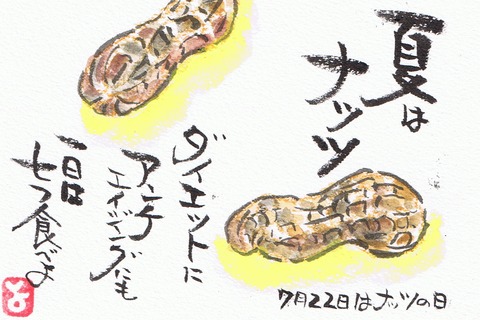 夏は
ナッツ
ダイエットに
アンチ
エイジングにも
一日は
七つ食べよ
7月22日はナッツの日